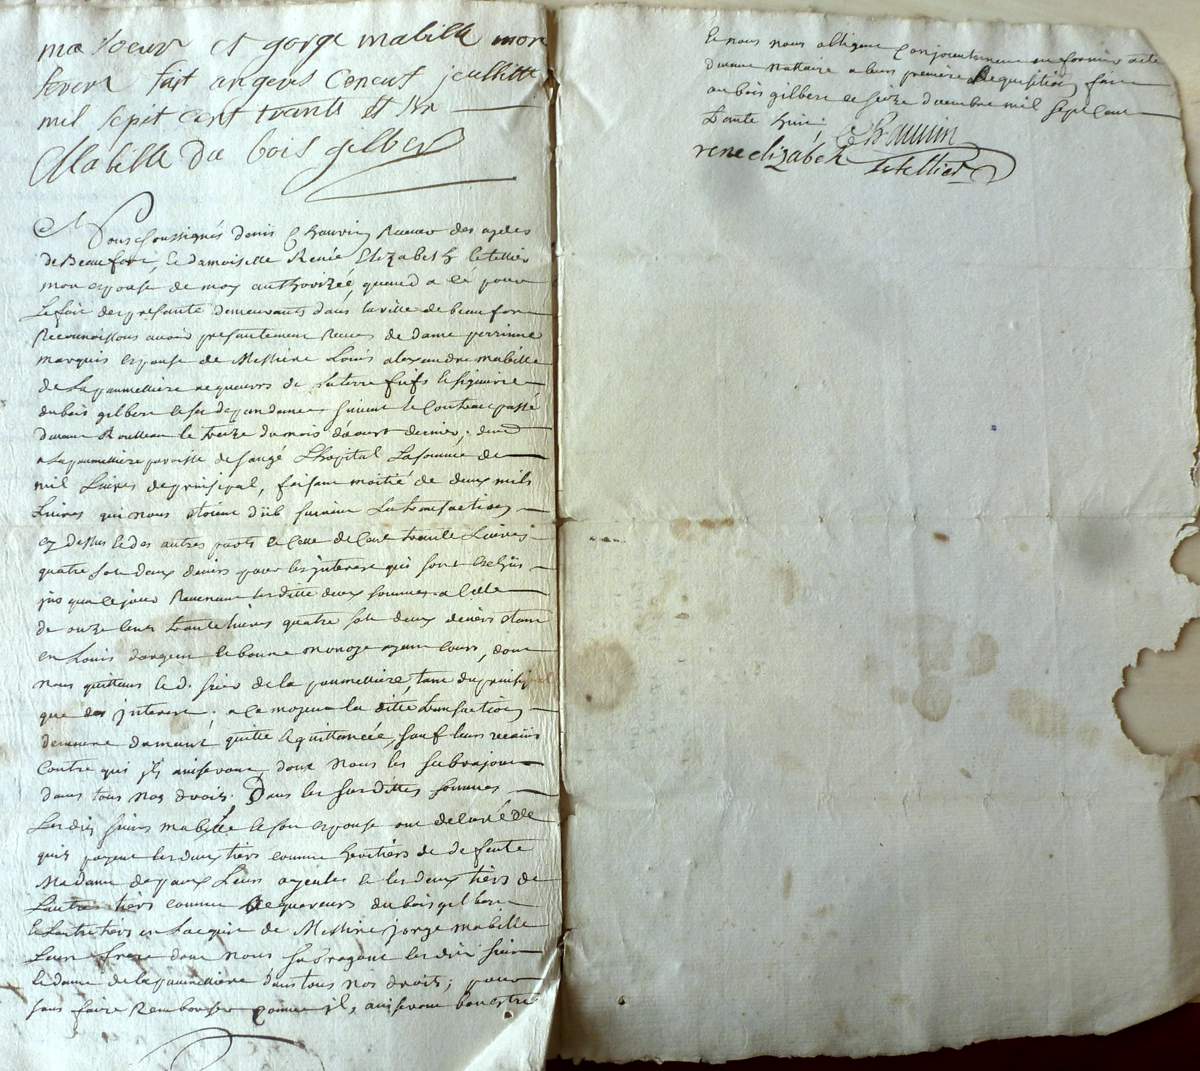 ma soeur et gorge mabille mon
frere fait angers ce neuf jeullitte
mil sepit cent trante et six
Mabille du bois gilber
Nous soussignés denis Chauvin Receveur des aydes
de Beaufort, et damoiselle Renée Elizabeth letellier
mon espouse de moy authorizée, quand a cé pour
Leffait des presante demeurants dans la ville de beaufort
Reconnoissons avoir presantement Receu de dame perrinne
marquis espouse de Messire Louis alexandre mabille
de La paumelliere acquereurs de la terre fiefs et signeurie
du bois gilbert et ses depandances suivant le Contract passé
davant Rousseau le treize du mois d'aoust dernier, dem.
a La paumelliere paroisse de sangé Lhopital La somme de
mil Livres de prinsipal, faisant moitié de deux mils
Livres qui nous etoient dub suivant La transaction
cy dessus et des autres parts et celle de Cent trante Livres
quatre sols deux deniers pour les jnterest qui sont Echûs
jus qua ce jour Revenant les ditte deux sommes a celle
de onze cents trante livres quatre sols deux deniers etant
en Louis d'argent et bonne monoye ayant cours, dont
nous quittons le d. sieur de la paumelliere, tant du prinsipal
que des jnterest; a ce moyen la ditte transaction
demeure d'amant quitte et quittancée, sauf leurs recours
Contre qui jls aviseront, dont nous les subrojons
dans tous nos droits. Dans les surdittes sommes
Lesdits sieurs mabille et son espouse ont declaré
quils payent les deux tiers comme heritiers de defunte
Madame de paux Leurs ayeulle et les deux tiers de
Lautre tiers comme acquereurs du bois gilbert
et Lautre tiers en Lacquit de Messire jorge mabille
Leur frere dont nous subrogeons lesdits sieur
et dame de la paumelliere dans tous nos droits; pour
sans faire Rembourser comme jls aviseront bon estre
Et nous nous obligeons Conjointement en fournir acte
davant nottaire a leurs premiere Requisition, fait
au bois gilbert ce seize decembre mil sept Cent
Trante huit, Chauvin
rene elizabeh letellier